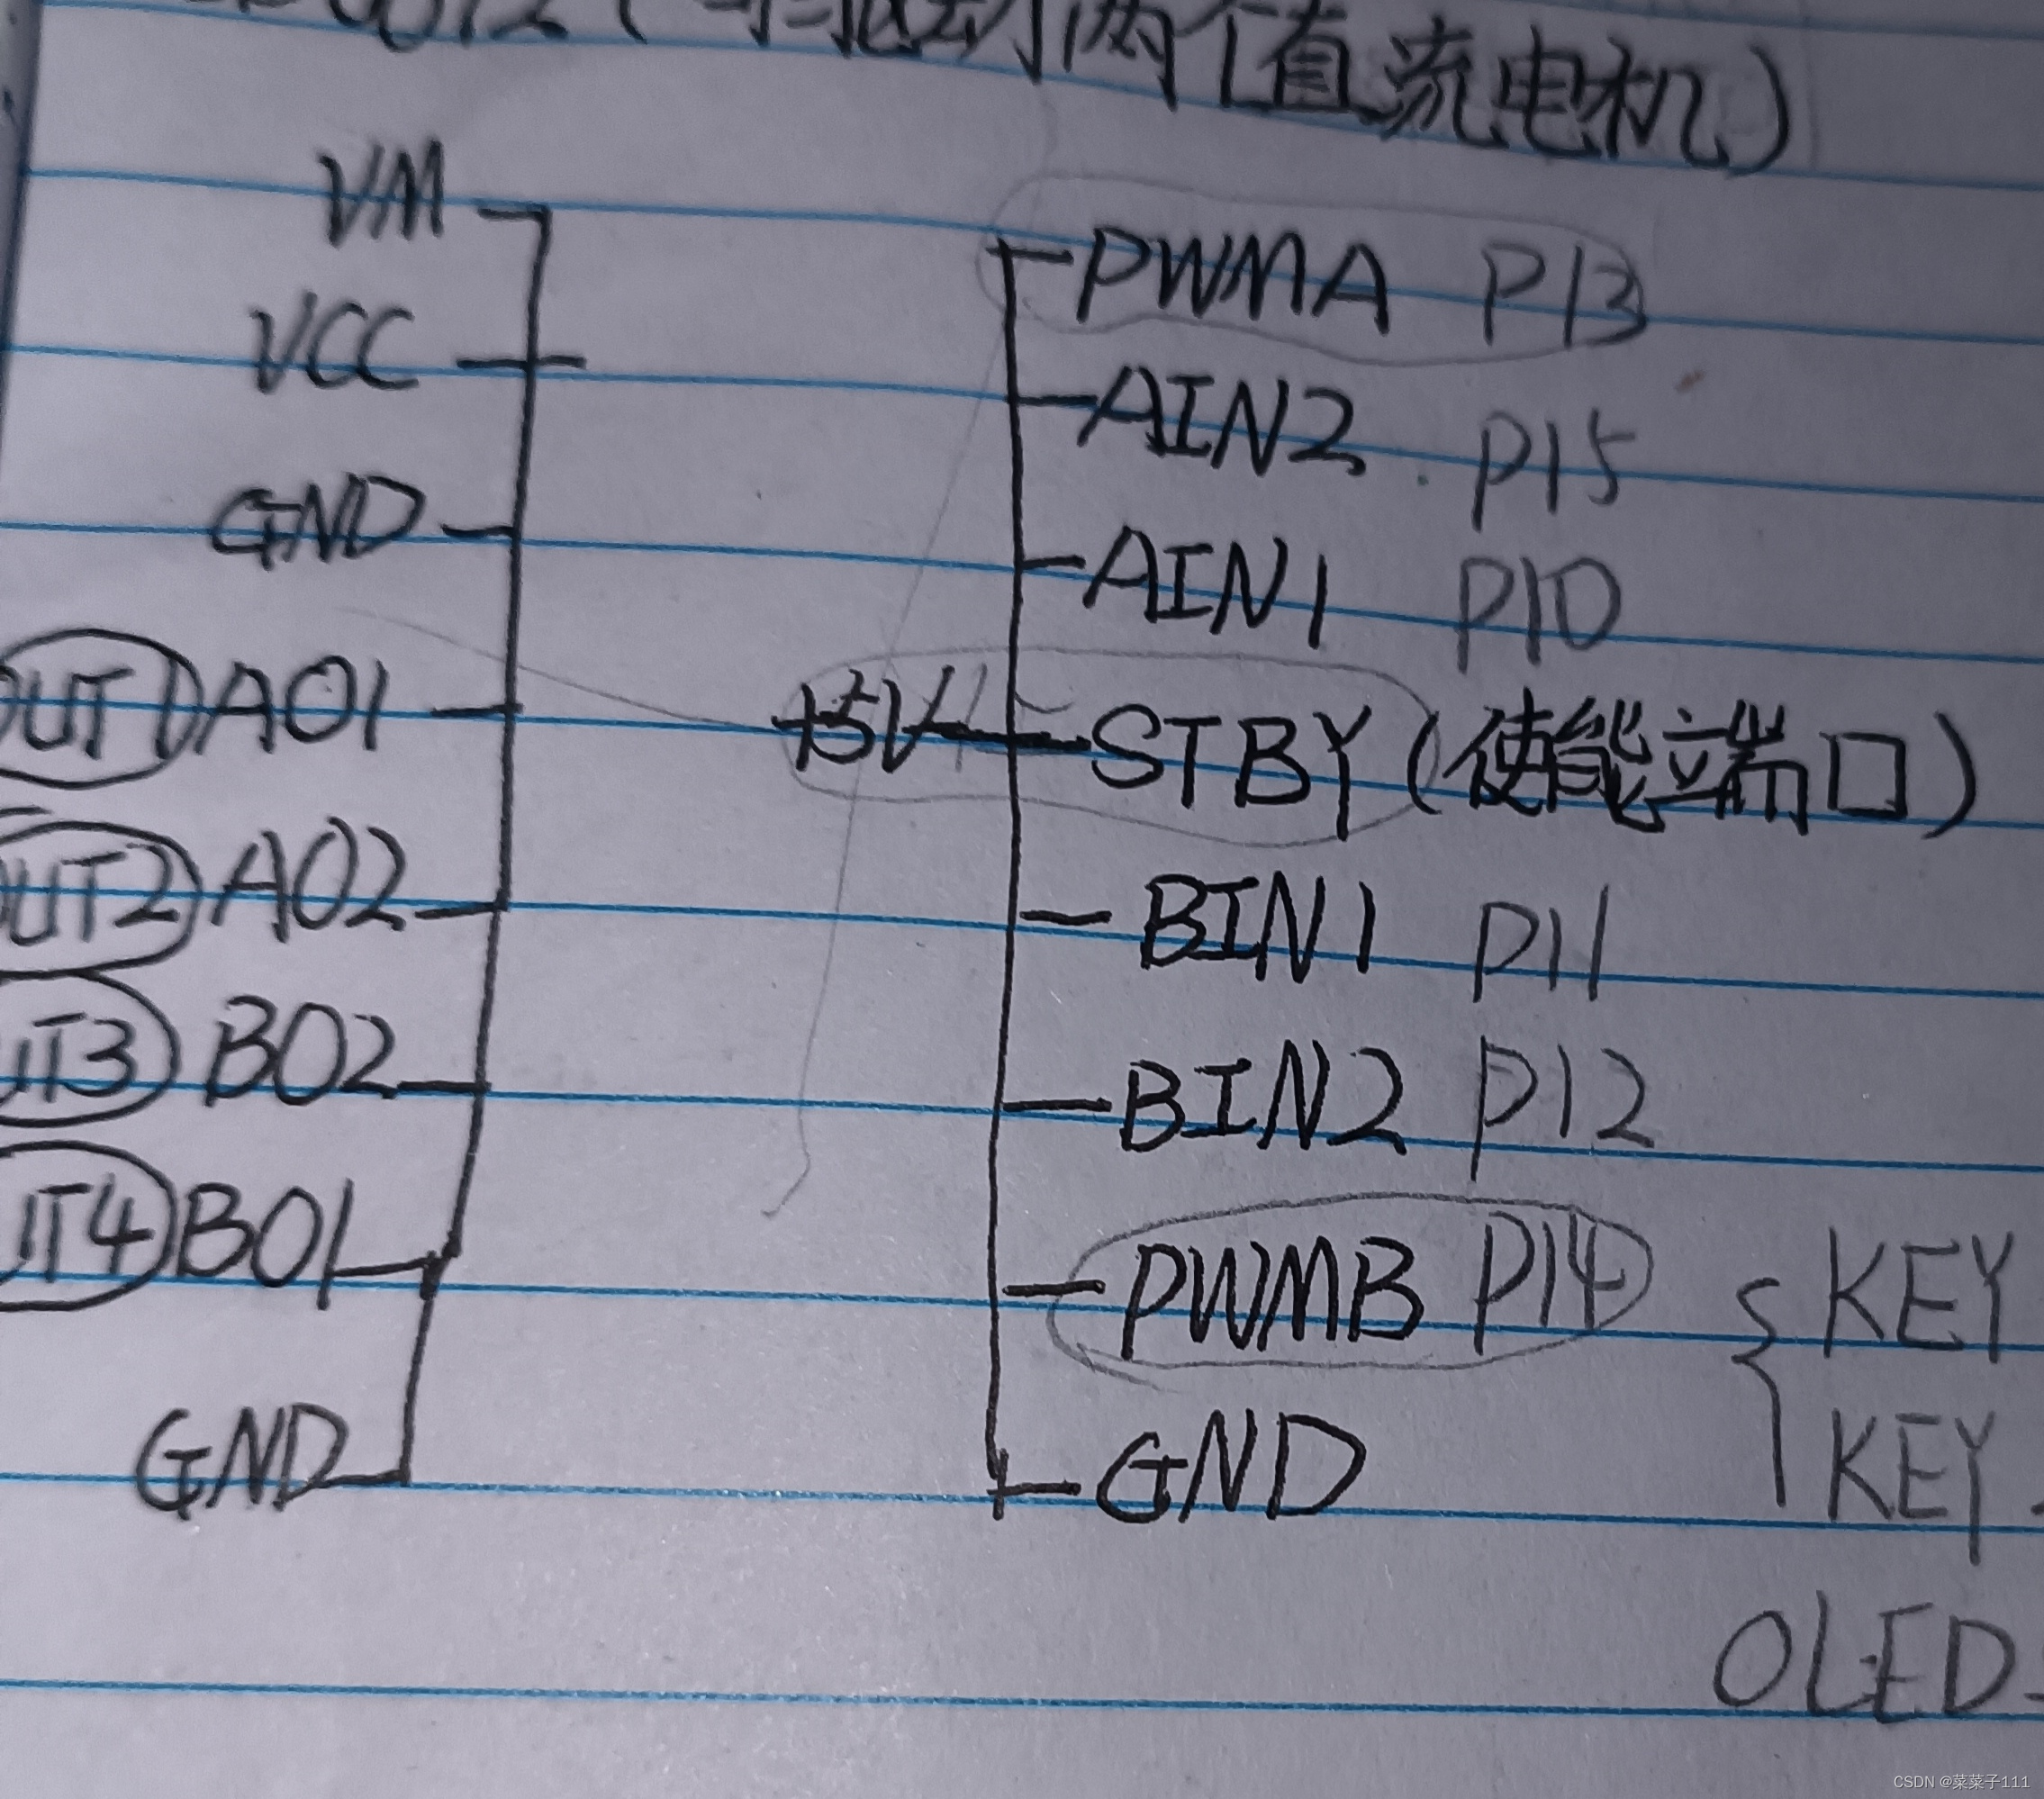 驱动两个直流电机)
VM
PWMA P13
VCC
AIN2 P15
GND
AIN1 P10
OUT1 AO1
+5V STBY (使能端口)
UT2 AO2
BIN1 P11
UT3 BO2
BIN2 P12
UT4 BO1
PWMB P14
KEY
GND
GND
KEY
OLED
CSDN @菜菜子111